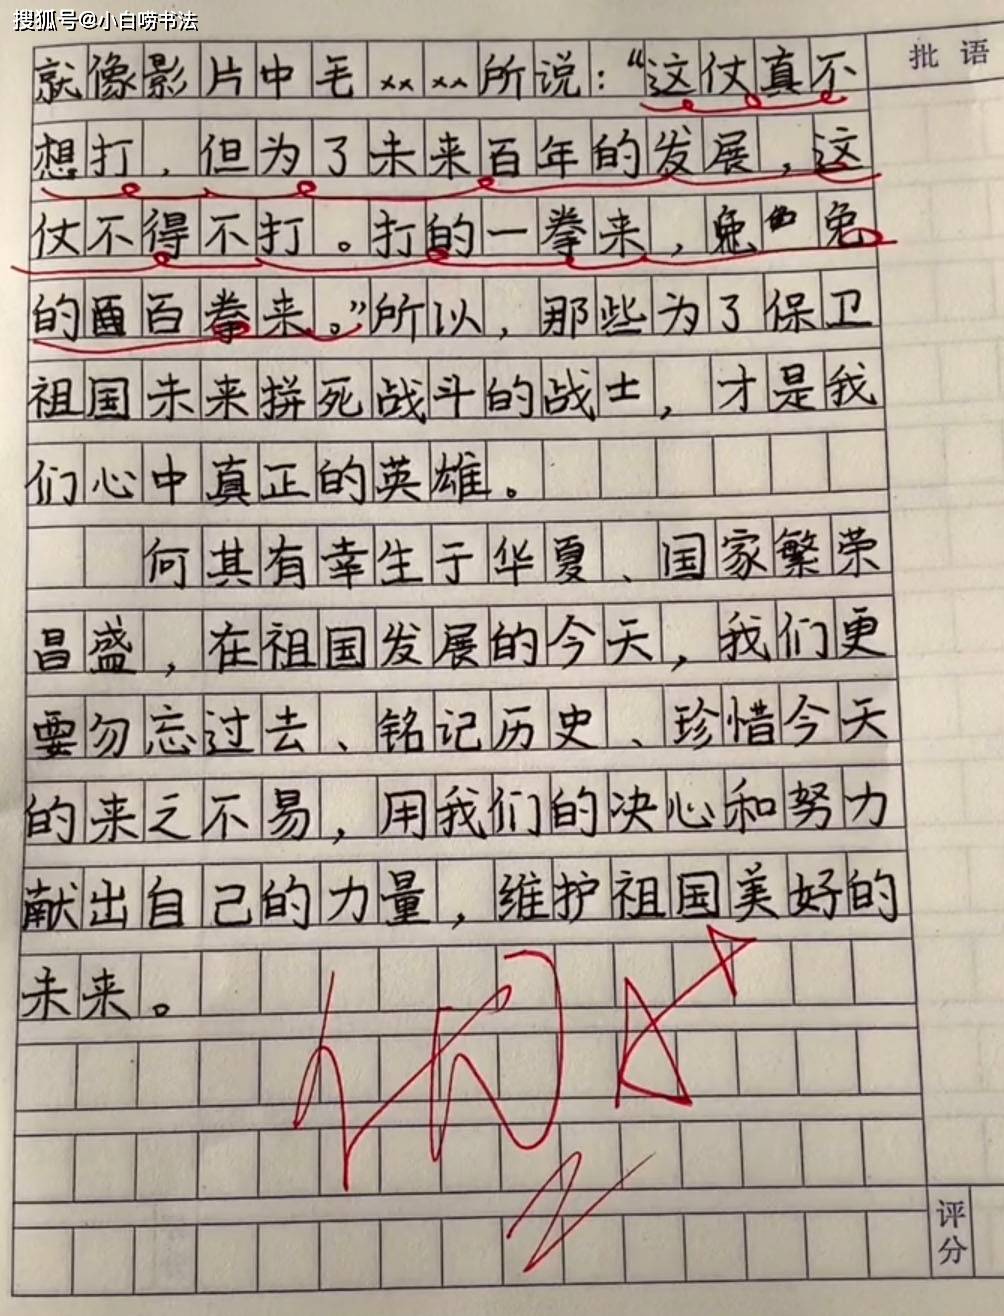 搜狐号@小白唠书法
批语
就像影片中毛××××所说：“这仗真不
想打，但为了未来百年的发展，这
仗不得不打。打的一拳来，兔兔
的百拳来。”所以，那些为了保卫
祖国未来拼死战斗的战士，才是我
们心中真正的英雄。
何其有幸生于华夏、国家繁荣
昌盛，在祖国发展的今天，我们更
要勿忘过去、铭记历史、珍惜今天
的来之不易，用我们的决心和努力
献出自己的力量，维护祖国美好的
未来。
评分